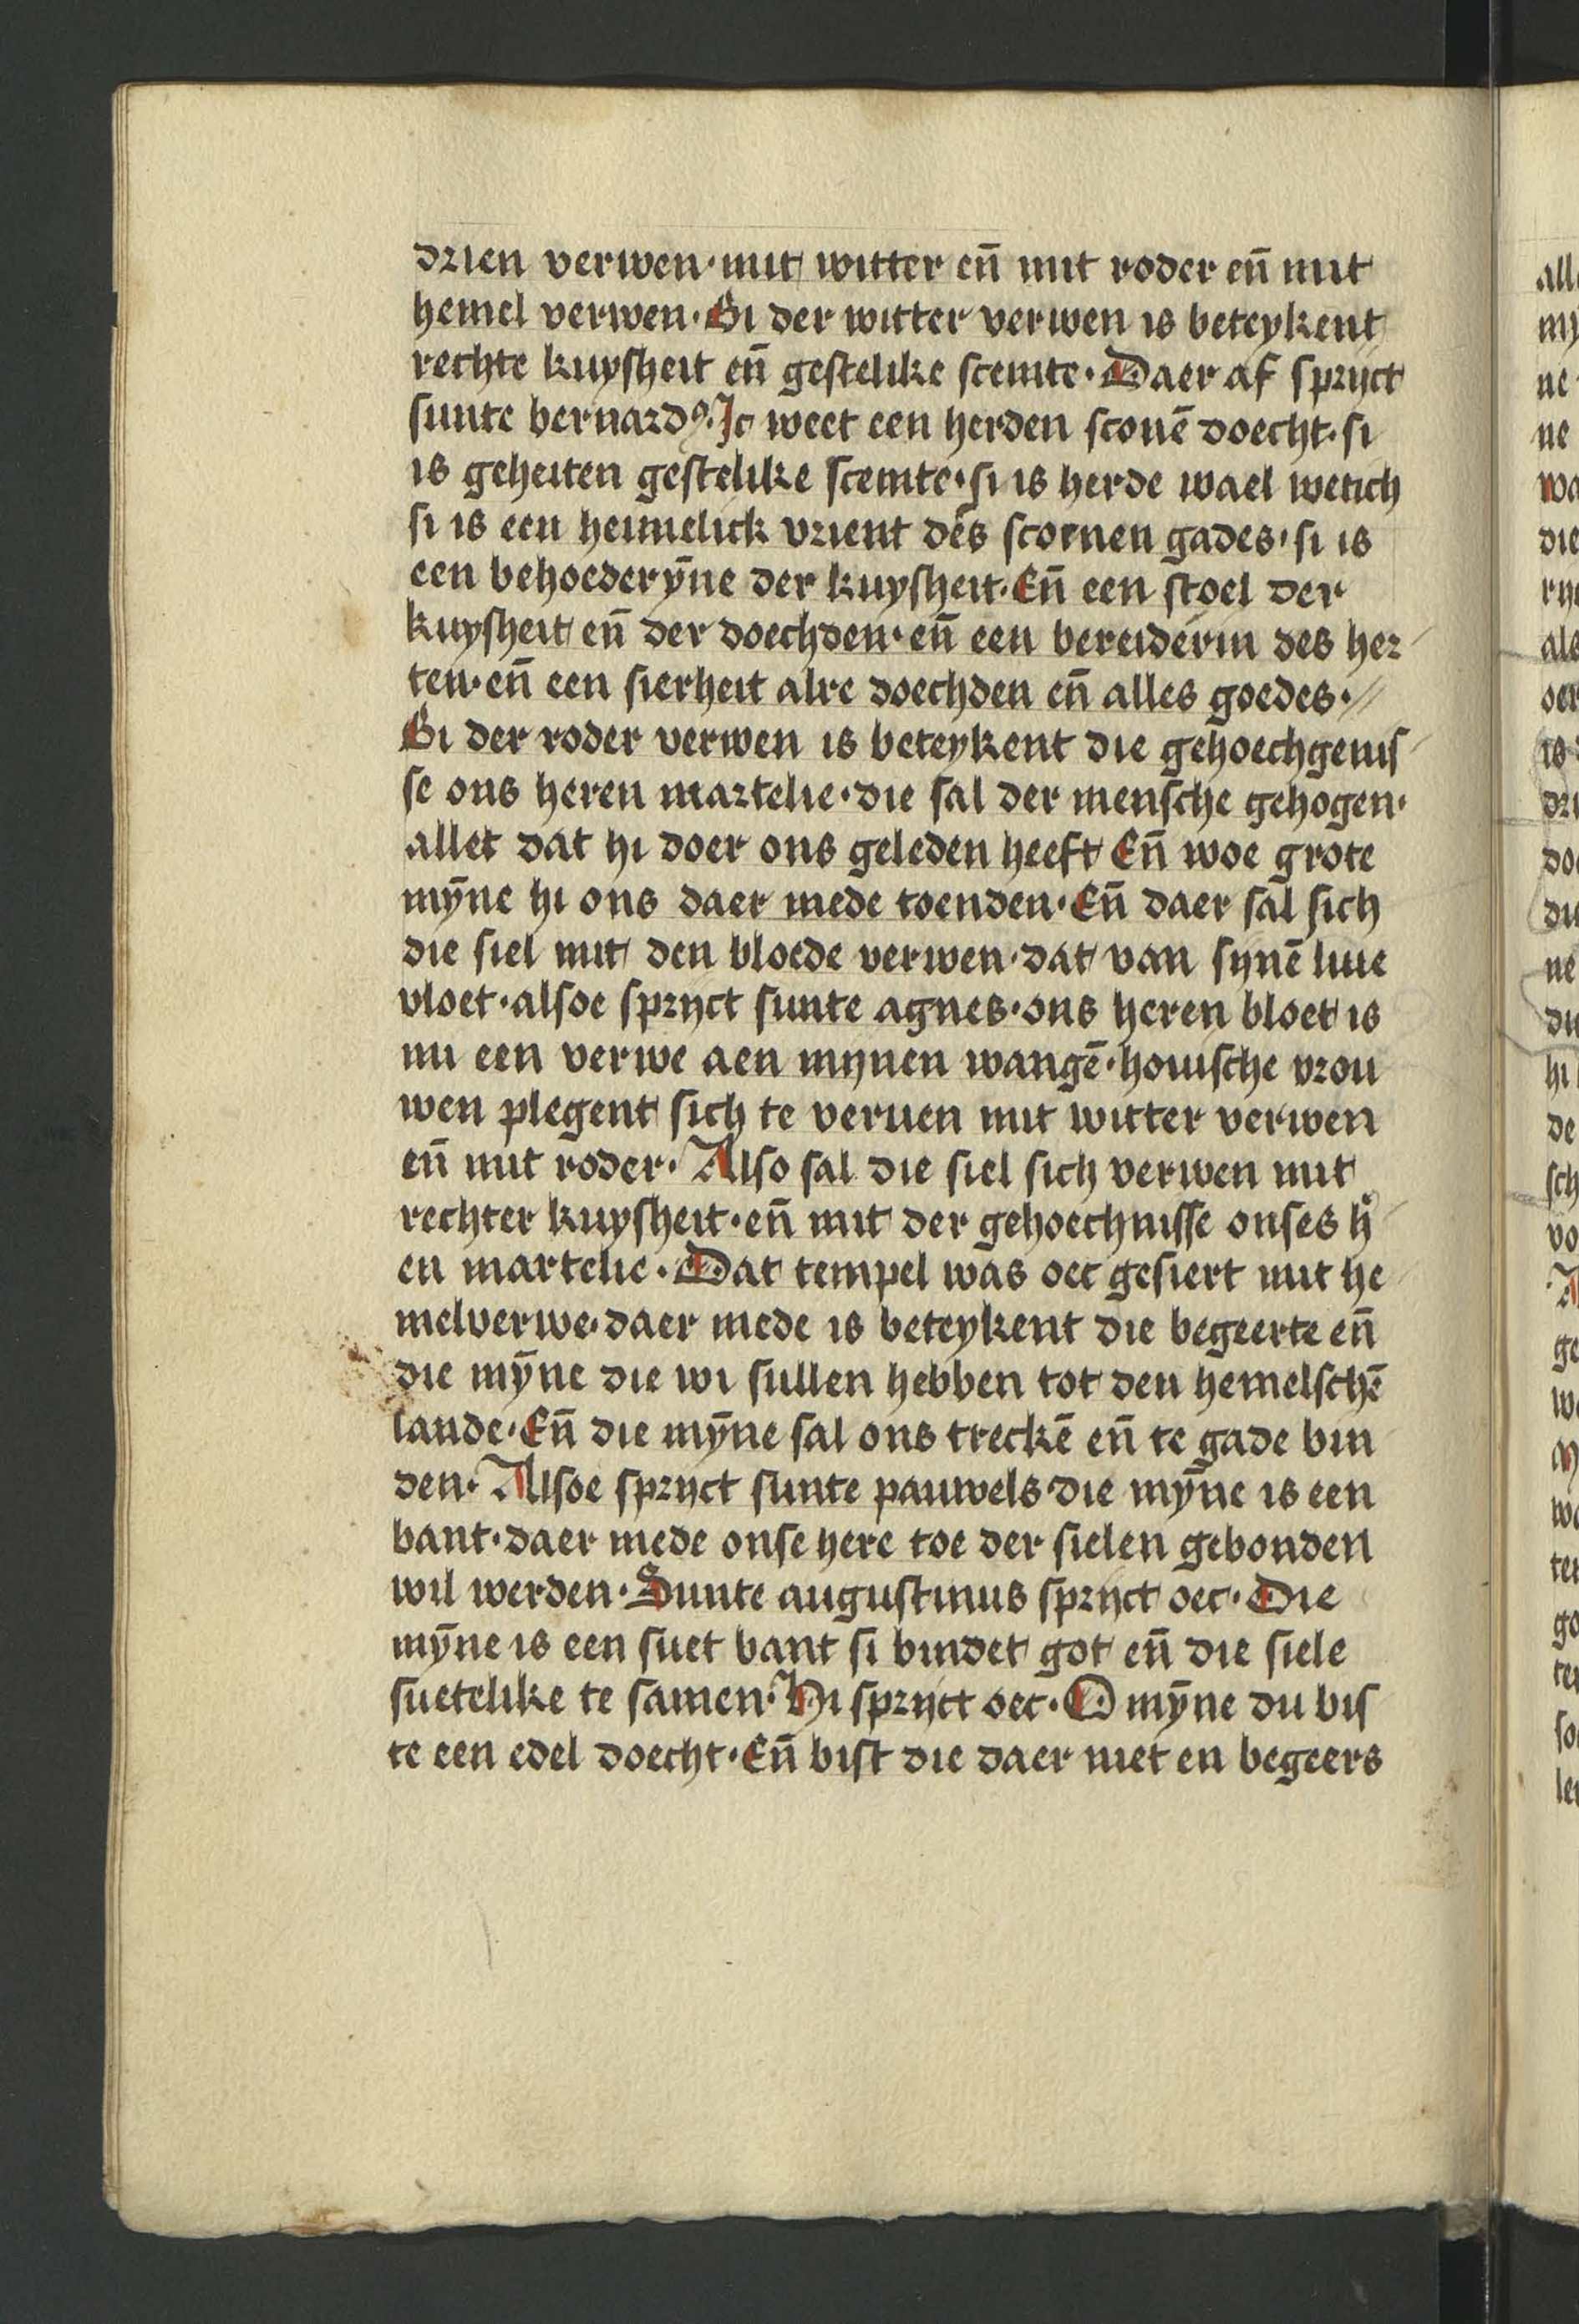 drien verwen · mit witter en̄ mit roder en̄ mit
hemel verwen · Bi der witter verwen is beteykent
rechte kuysheit en̄ gestelike scemte · Daer af spryct
sunte bernardꝰ · Ic weet een herden sconē doecht · si
is geheiten gestelike scemte · si is herde wael wetich
si is een heimelick vrient des scoenen gades · si is
een behoederȳne der kuysheit · En̄ een stoel der
kuysheit en̄ der doechden · en̄ een bereiderin des her
ten · en̄ een sierheit alre doechden en̄ alles goedes ·
Bi der roder verwen is beteykent die gehoechgenis
se ons heren martelie · die sal der mensche gehogen ·
allet dat hi doer ons geleden heeft En̄ woe grote
mȳne hi ons daer mede toenden · En̄ daer sal sich
die siel mit den bloede verwen · dat van synē liue
vloet · alsoe spryct sunte agnes · ons heren bloet is
nu een verwe aen mynen wangē · houische vrou
wen plegent sich te veruen mit witter verwen
en̄ mit roder · Also sal die siel sich verwen mit
rechter kuysheit · en̄ mit der gehoechnisse onses h̄
en martelie · Dat tempel was oec gesiert mit he
melverwe · daer mede is beteykent die begeerte en̄
die mȳne die wi sullen hebben tot den hemelschē
lande · En̄ die mȳne sal ons treckē en̄ te gade bin
den · Alsoe spryct sunte pauwels die mȳne is een
bant · daer mede onse here toe der sielen gebonden
wil werden · Sunte augustinus spryct oec · Die
mȳne is een suet bant si bindet got en̄ die siele
suetelike te samen · Hi spryct oec · O mȳne du bis
te een edel doecht · En̄ bist die daer niet en begeers